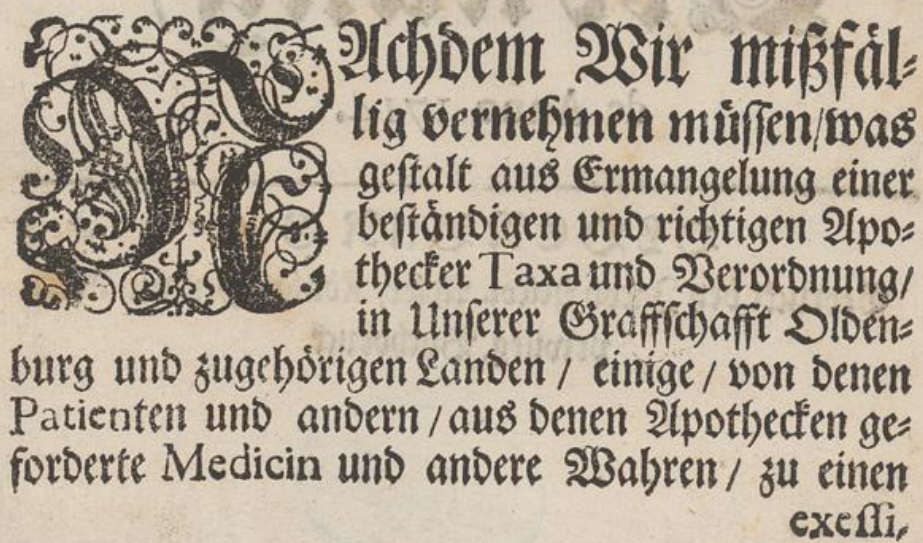 NAchdem Wir mißfäl-
lig vernehmen müssen/was
gestalt aus Ermangelung einer
beständigen und richtigen Apo-
thecker Taxa und Verordnung/
in Unserer Graffschafft Olden-
burg und zugehörigen Landen / einige / von denen
Patienten und andern / aus denen Apothecken ge-
forderte Medicin und andere Wahren / zu einen
exessi,